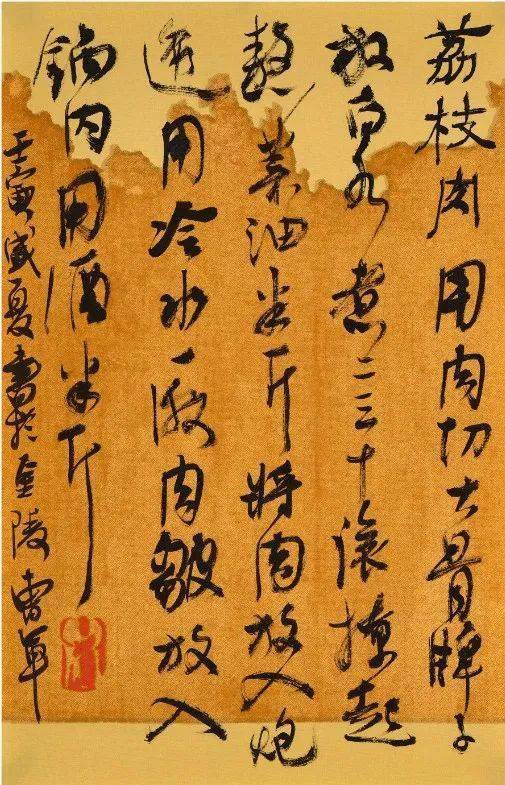 荔枝肉用肉切大骨牌子
放白水煮二三十滾撩起
熬菜油半斤將肉放入炮
透用冷水一激肉皺放入
鍋内用酒半斤
壬寅盛夏書於金陵曹軍